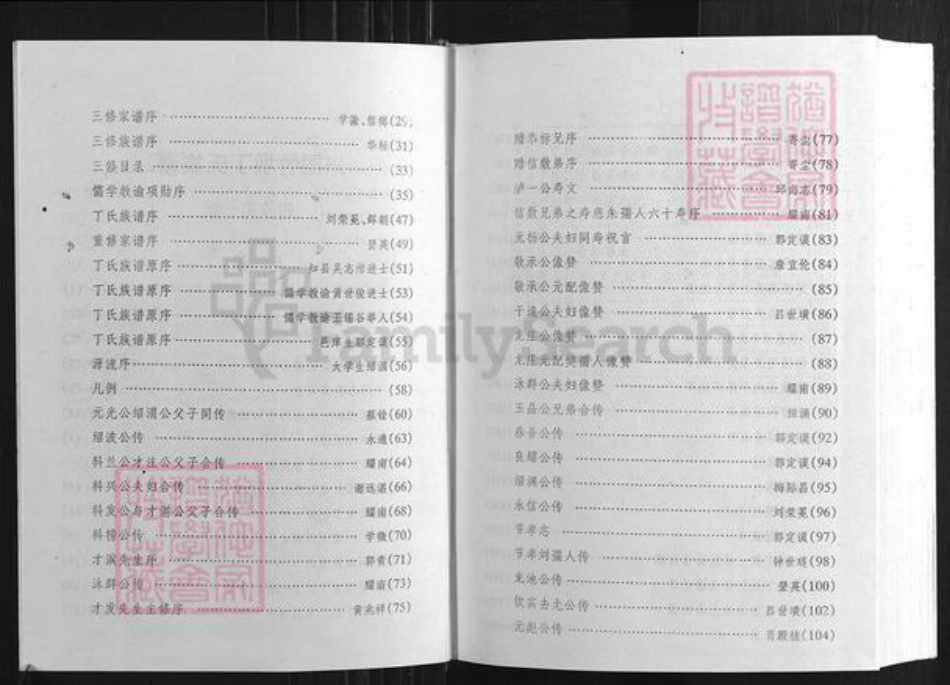 三修家谱序 (29)
三修族谱序 华标(31)
三修目录 (33)
儒学教谕项贴序 (35)
丁氏族谱序 刘荣冕、辉朝(47)
重修家谱序 登英(49)
丁氏族谱原序 知县吴志绾进士(51)
丁氏族谱原序 儒学教谕黄世俊进士(53)
丁氏族谱原序 儒学教谕王锡谷举人(54)
丁氏族谱原序 邑庠生郭定谟(55)
源流序 大学生绍濂(56)
凡例 (58)
元光公绍渭公父子同传 (60)
绍波公传 永通(63)
科兰公才注公父子合传 耀南(64)
科兴公夫妇合传 谢远湛(66)
科发公与才湛公父子合传 耀南(68)
科榜公传 学徽(70)
才溪先生序 郭青(71)
沐群公传 耀南(73)
才发先生主修序 黄兆祥(75)
赠亦标兄序 寄尘(77)
赠信敷弟序 寄尘(78)
泸一公寿文 邱尚志(79)
信敷兄弟之寿慈朱孺人六十寿序 耀南(81)
元标公夫妇同寿祝言 郭定谟(83)
敬承公像赞 詹宜伦(84)
敬承公元配像赞 (85)
于逵公夫妇像赞 吕世璜(86)
九庄公像赞 (87)
九庄元配樊孺人像赞 (88)
沐群公夫妇像赞 耀南(89)
玉晶公兄弟合传 (90)
公传 郭定谟(92)
良绍公传 郭定谟(94)
绍满公传 梅际昌(95)
永信公传 刘荣冕(96)
节孝志 郭定谟(97)
节孝刘孺人传 钟世(98)
龙池公传 登英(100)
饮宾吉光公传 吕世璜(102)
元彪公传 肖殿佳(104)
FamilySearch